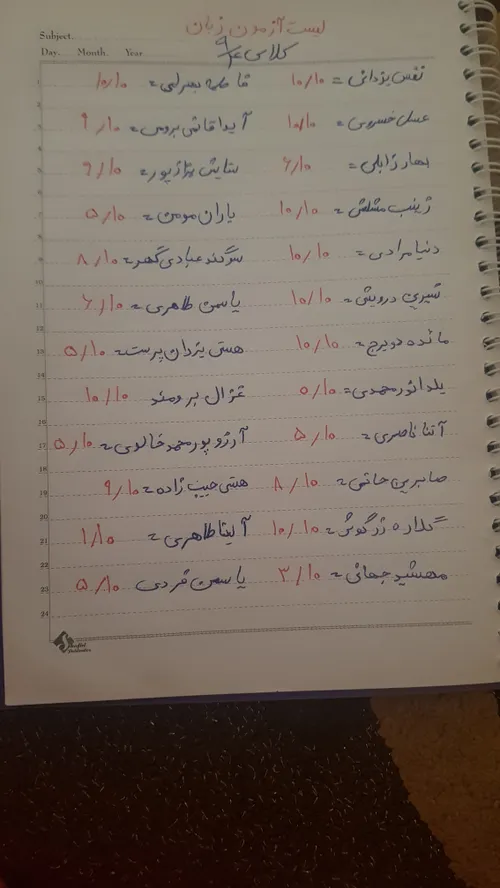 لیست آزمون زبان
کلاس ۹/۴
Subject.
Day. Month. Year
نفس یزدانی = ۱۰/۱۰ فاطمه بصرایی = ۱۰/۱۰
عسل خسروی = ۱۰/۱۰ آیدا قائمی برومی = ۹/۱۰
بهار زابلی = ۶/۱۰ ستایش پور = ۹/۱۰
زینب مشلش = ۱۰/۱۰ باران مومن = ۵/۱۰
دنیا مرادی = ۱۰/۱۰ سوگند عبادی گهر = ۸/۱۰
شیرین درویش = ۱۰/۱۰ یاسمن طاهری = ۶/۱۰
مائده دویرج = ۱۰/۱۰ هستی یزدان پرست = ۵/۱۰
یلدا نورمحمدی = ۵/۱۰ غزال برومند ۱۰/۱۰
آتنا ناصری = ۵/۱۰ آرزو پورمحمد خالویی = ۵/۱۰
صابرین حاتمی = ۸/۱۰ هستی حبیب زاده = ۹/۱۰
گلاره زرگوش = ۱۰/۱۰ آلینا طاهری = ۱/۱۰
مهشید جهانی = ۳/۱۰ یاسمن فردی ۵/۱۰